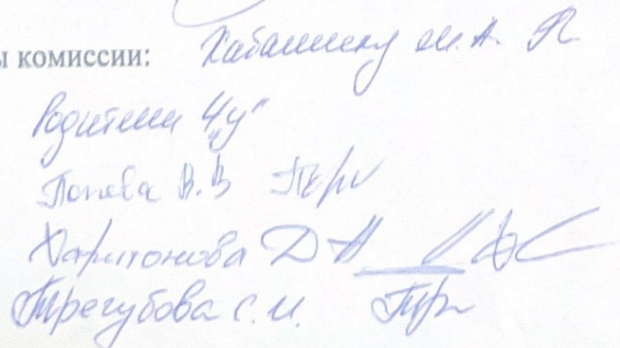 ы комиссии: М. А.
Родители 4 "у"
Попова В. В
Харитонова Д А
Трегубова С. И.